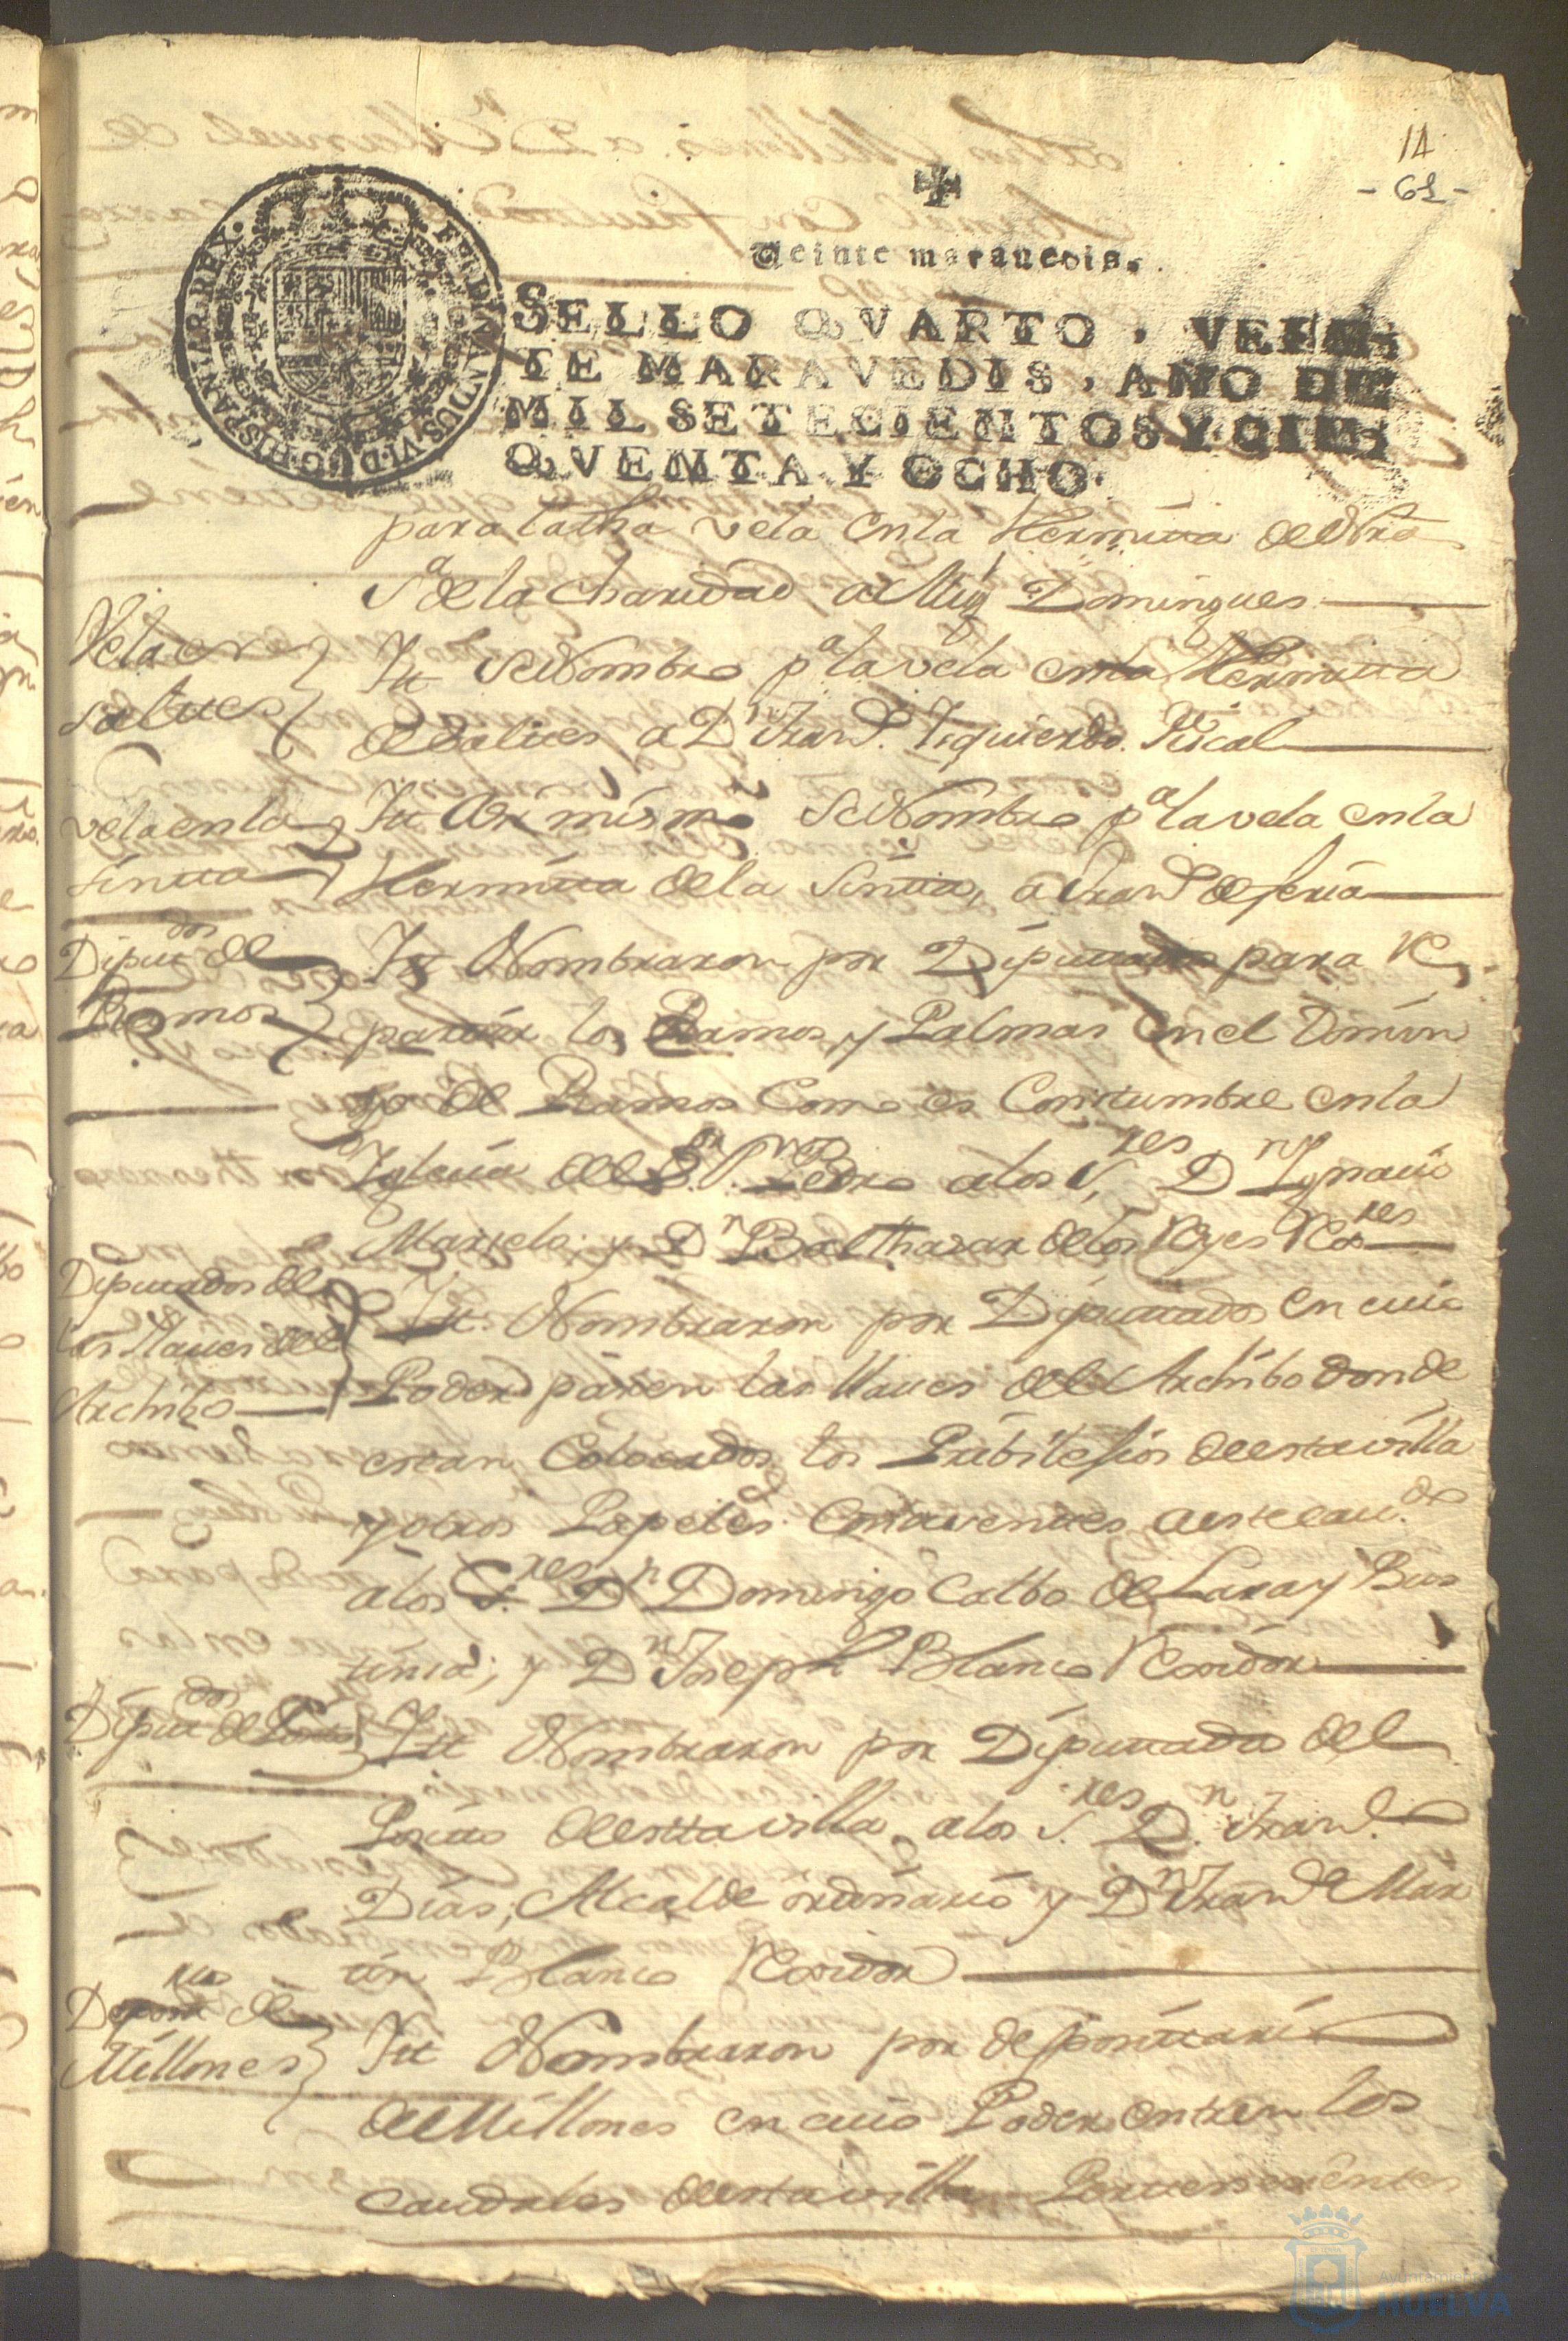 14
- 61 -
✠
Veinte maravedis.
FERDINANDUS·VI·D·G·HISPANIAR·REX·
SELLO QVARTO, VEIN-
TE MARAVEDIS, AÑO DE
MIL SETECIENTOS Y CIN-
QVENTA Y OCHO.
para la tha vela en la Hermita de Nra
Sª de la Charidad a Domingues
Vela en
saltues
Itt Se Nombro pª la vela en la Hermita
de Saltues a Dn Franco Izquierdo. Fiscal
vela en la
sintta
Itt Asi mismo Se Nombro pª la vela en la
Hermitta de la Sintta, a Franco de feria
Diputdos de
Ramos
Itt Nombraron por Diputtados para Re
partir los Ramos, y Palmas en el Domin
go de Ramos Como es Constumbre en la
Iglecia del Sor Sn Pedro a los Sres Dn Ygnacio
y Dn Balthazar de los Reyes Rres
Diputtados de
las llaues del
Archibo
Itt. Nombraron por Diputtados en cuio
Poder páren las llaues del Archibo donde
estan Colocados los Pribilesios de esta villa
y otros Papeles a este cauddo
a los Sres Dn Domingo Calbo de Lara y Bus
y Dn Joseph Blanco Rexidor
Diputdos de Posito
Itt Nombraron por Diputtados del
Positto de estta villa a los Sres Dn Franco
Dias, Alcalde ordinario y Dn Franco Mar
tin Blanco Rexidor
Depositrio de
Millones
Itt Nombraron por depositario
de Millones en cuio Poder entren los
caudales de esta villa
Ayuntamiento de
HUELVA